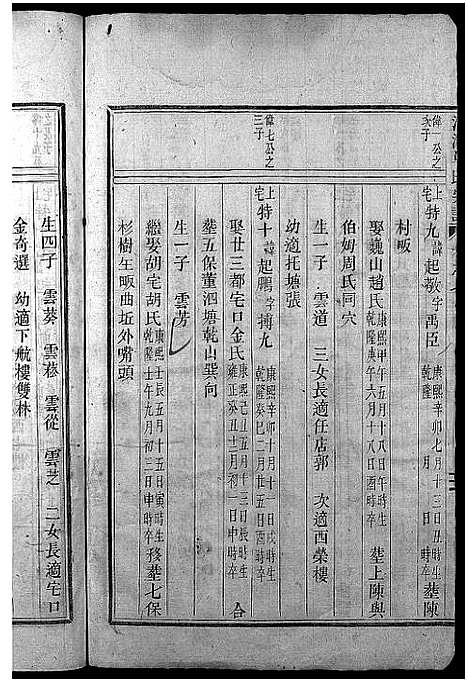 偉一公之
次子
上宅特九諱起敎字禹臣 康熙辛卯七月十三日丑時生 乾隆 年 月 塟陳
村畈
娶巍山趙氏 康熙甲午六月十八日午時生 乾隆庚午六月十八日酉時卒 塟上陳與
伯姆周氏同穴
生一子 雲道 三女長適任店郭 次適西榮樓
幼適托塘張
偉七公之
三子
上宅特十諱起鵬字摶九 康熙辛卯十月十一日戌時生 乾隆癸巳二月廿五日酉時卒
娶廿三都宅口金氏 康熙己丑五月十三日辰時生 雍正癸丑十二月初一日申時卒 合
塟五保董泗塘乾山巽向
生一子 雲芳
繼娶胡宅胡氏 康熙壬辰五月十五日寅時生 乾隆壬午九月初三日申時卒 歿塟七保
杉樹垤畈曲坵外嘴頭
生四子 雲葵 雲榛 雲從 雲芝 二女長適宅口
金奇選 幼適下航樓雙林